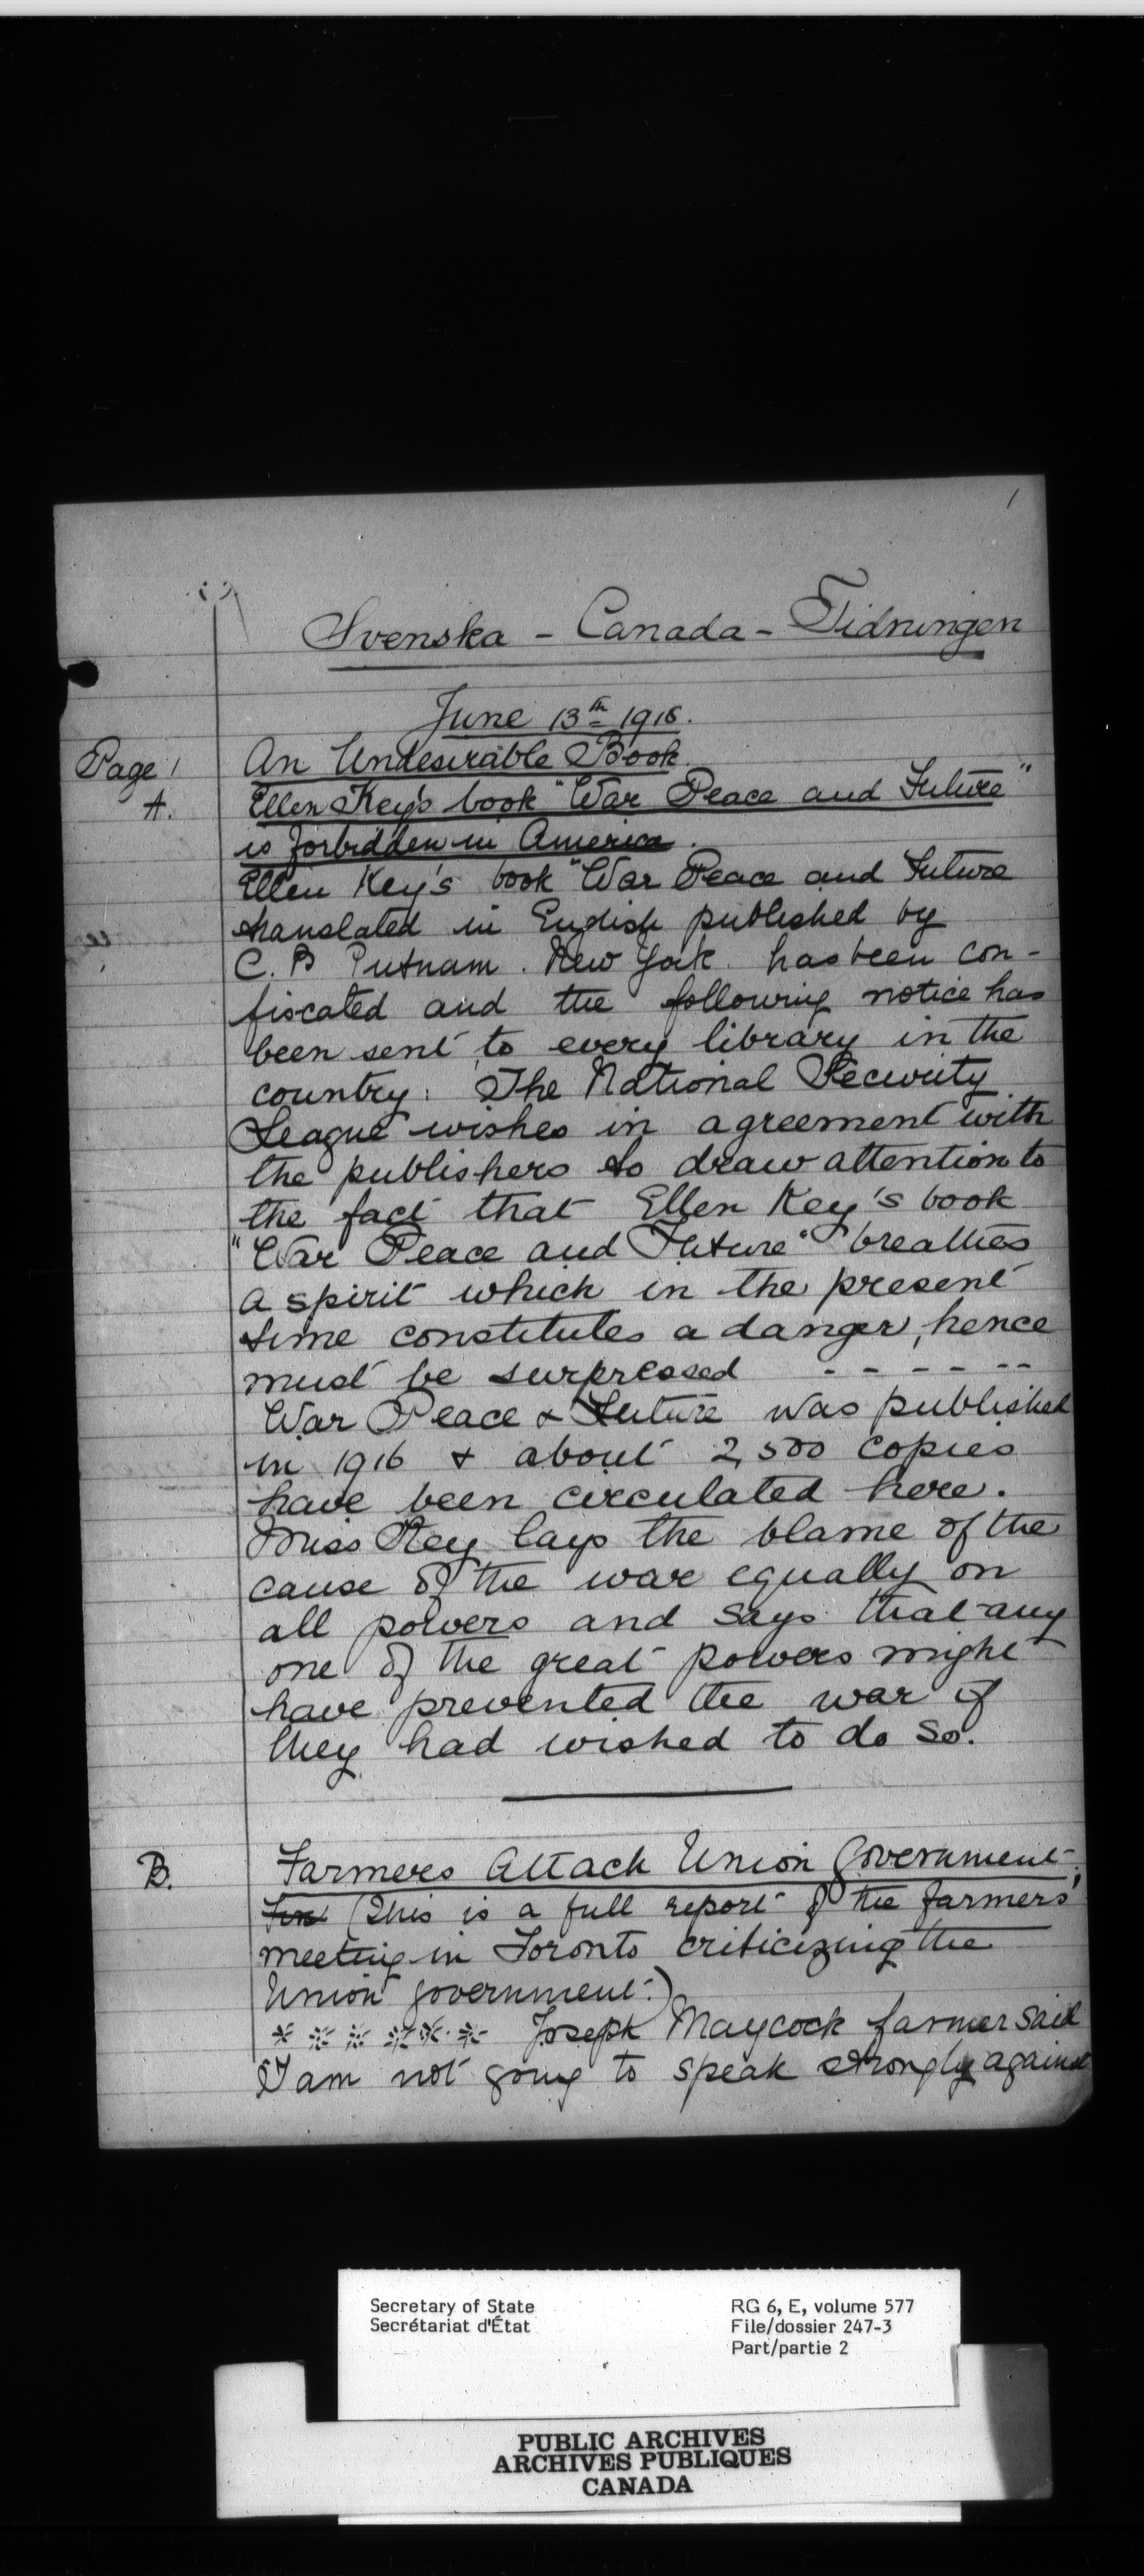 1
Svenska - Canada - Tidningen
June 13th 1918.
Page 1
An Undesirable Book.
A.
Ellen Key's book "War Peace and Future"
is forbidden in America.
Ellen Key's book "War Peace and Future
translated in English published by
C. P Putnam. New York. has been con-
fiscated and the following notice has
been sent to every library in the
country: The National Security
League wishes in agreement with
the publishers to draw attention to
the fact that Ellen Key's book
"War Peace and Future" breathes
a spirit which in the present
time constitutes a danger, hence
must be surpressed - - - - - -
War Peace & Future was published
in 1916 & about 2,500 copies
have been circulated here.
Miss Key lays the blame of the
cause of the war equally on
all powers and says that any
one of the great powers might
have prevented the war if
they had wished to do so.
B.
Farmers Attack Union Government.
(This is a full report of the farmers'
meeting in Toronto criticizing the
Union government.)
* * * * * * Joseph Maycock farmer said
"I am not going to speak strongly against
Secretary of State
Secrétariat d'État
RG 6, E, volume 577
File/dossier 247-3
Part/partie 2
PUBLIC ARCHIVES
ARCHIVES PUBLIQUES
CANADA